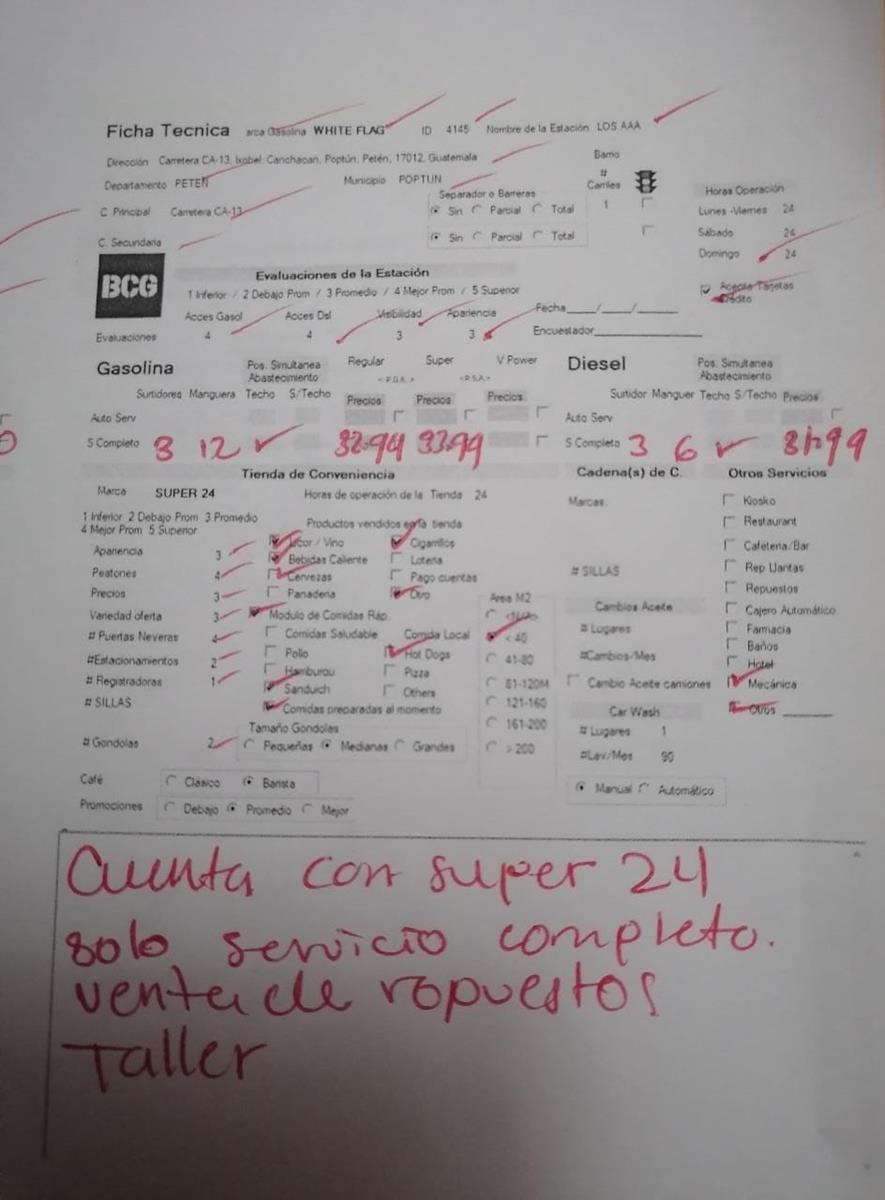 Ficha Tecnica arca Gasolina WHITE FLAG ID 4145 Nombre de la Estación LOS AAA
Dirección Carretera CA-13, Ixobel: Canchacan, Poptún, Petén, 17012, Guatemala
Departamento PETEN Municipio POPTUN
Barrio
# Carriles
1
C. Principal Carretera CA-13
C. Secundaria
Separador o Barreras
Sin Parcial Total
Sin Parcial Total
Horas Operación
Lunes -Viernes 24
Sábado 24
Domingo 24
BCG
Evaluaciones de la Estación
1 Inferior / 2 Debajo Prom / 3 Promedio / 4 Mejor Prom / 5 Superior
Acepta Tarjetas
Crédito
Acces Gasol Acces Dsl Visibilidad Apariencia
Evaluaciones 4 4 3 3
Fecha___/___/___
Encuestador
Gasolina
Pos. Simultanea
Abastecimiento
Regular Super V Power
Surtidores Manguera Techo S/Techo Precios Precios Precios
Auto Serv
S Completo 3 12 32.99 33.99
Diesel
Pos. Simultanea
Abastecimiento
Surtidor Manguer Techo S/Techo Precios
Auto Serv
S Completo 3 6 31.99
Tienda de Conveniencia
Marca SUPER 24 Horas de operación de la Tienda 24
1 Inferior 2 Debajo Prom 3 Promedio
4 Mejor Prom 5 Superior
Apariencia 3
Peatones 4
Precios 3
Variedad oferta 3
# Puertas Neveras 4
#Estacionamientos 2
# Registradoras 1
# SILLAS
# Gondolas 2
Productos vendidos en la tienda
Licor / Vino Cigarrillos
Bebidas Caliente Loteria
Cervezas Pago cuentas
Panaderia Otro
Modulo de Comidas Ráp.
Comidas Saludable Comida Local
Pollo Hot Dogs
Hamburgu Pizza
Sanduich Others
Comidas preparadas al momento
Tamaño Gondolas
Pequeñas Medianas Grandes
Area M2
< 40
41-80
81-120M
121-160
161-200
> 200
Café Clásico Barista
Promociones Debajo Promedio Mejor
Cadena(s) de C.
Marcas
# SILLAS
Cambios Aceite
# Lugares
#Cambios/Mes
Cambio Aceite camiones
Car Wash
# Lugares 1
#Lav/Mes 90
Manual Automático
Otros Servicios
Kiosko
Restaurant
Cafeteria/Bar
Rep Llantas
Repuestos
Cajero Automático
Farmacia
Baños
Hotel
Mecánica
Otros
Cuenta con super 24
solo servicio completo.
venta de ropuestos
Taller